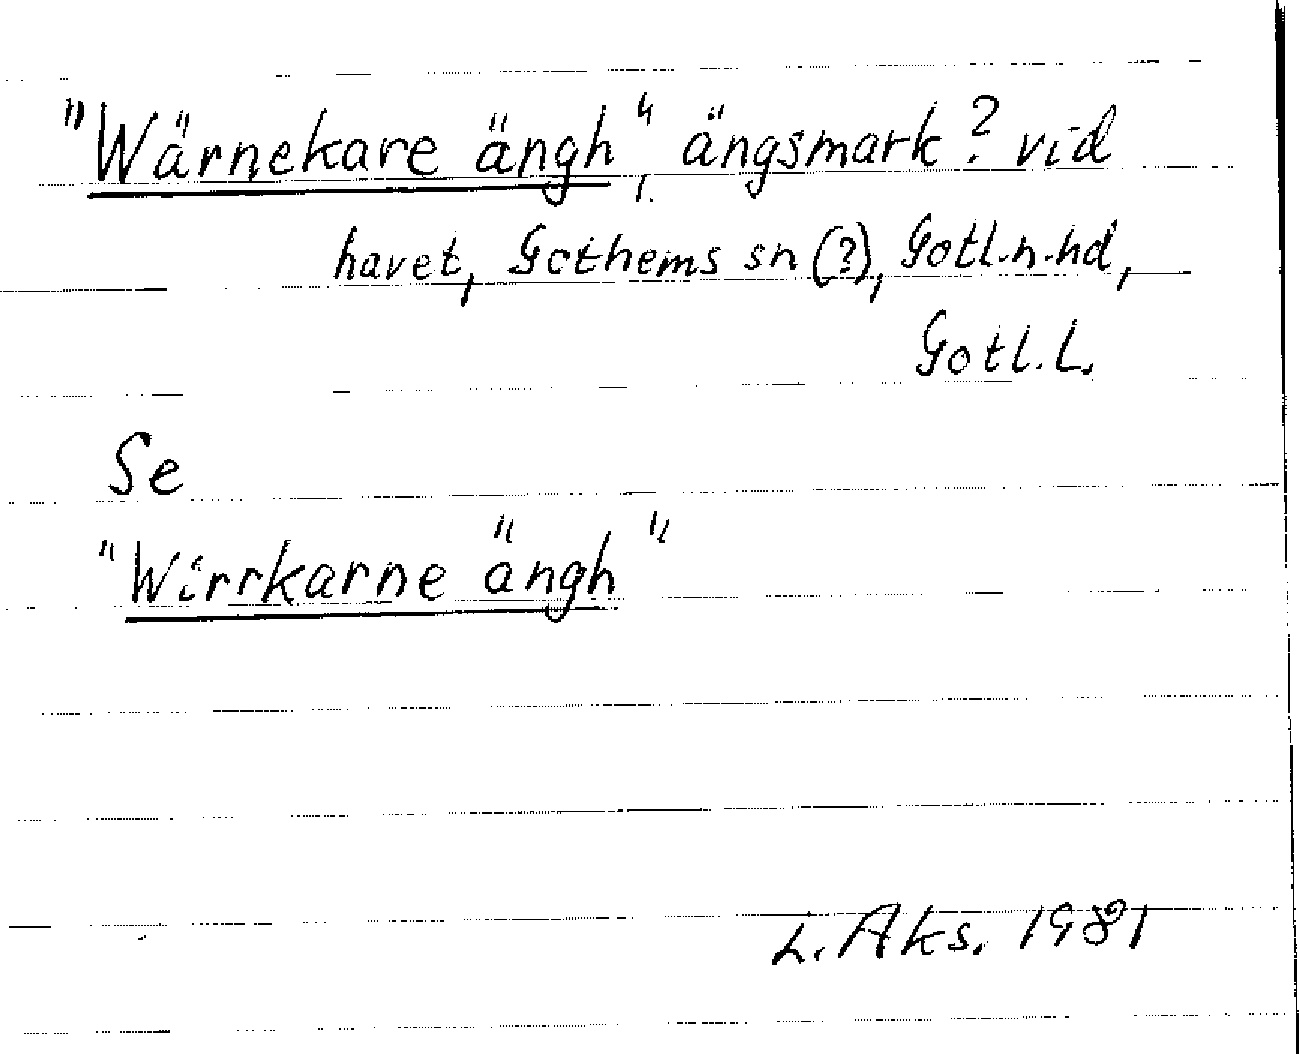 "Wärnekare ängh", ängsmark? vid
havet, Gothems sn (?), Gotl.n.hd,
Gotl.L.
Se
"Wirrkarne ängh"
L. Aks. 1981